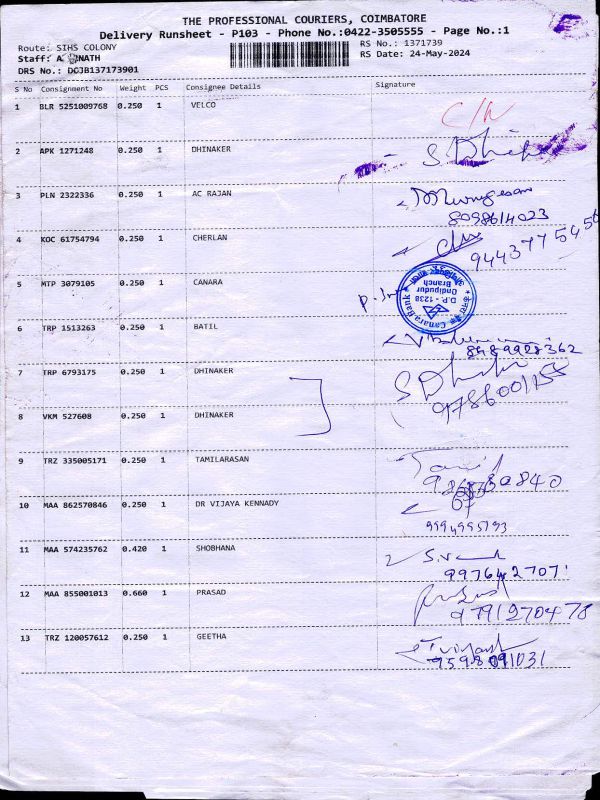 THE PROFESSIONAL COURIERS, COIMBATORE
Delivery Runsheet - P103 - Phone No.:0422-3505555 - Page No.:1
Route: SIHS COLONY
RS No.: 1371739
Staff: A NATH
RS Date: 24-May-2024
DRS No.: DCJB137173901
S No Consignment No Weight PCS Consignee Details Signature
1 BLR 5251009768 0.250 1 VELCO
2 APK 1271248 0.250 1 DHINAKER
3 PLN 2322336 0.250 1 AC RAJAN
8098614023
4 KOC 61754794 0.250 1 CHERLAN
9443775456
5 MTP 3079105 0.250 1 CANARA
Canara Bank
D.P. - 1238
Ondipudur
Branch
6 TRP 1513263 0.250 1 BATIL
8489928362
7 TRP 6793175 0.250 1 DHINAKER
8 VKM 527608 0.250 1 DHINAKER
9786001155
9 TRZ 335005171 0.250 1 TAMILARASAN
10 MAA 862570846 0.250 1 DR VIJAYA KENNADY
9994995793
11 MAA 574235762 0.420 1 SHOBHANA
9976427071
12 MAA 855001013 0.660 1 PRASAD
9791270478
13 TRZ 120057612 0.250 1 GEETHA
9598091031